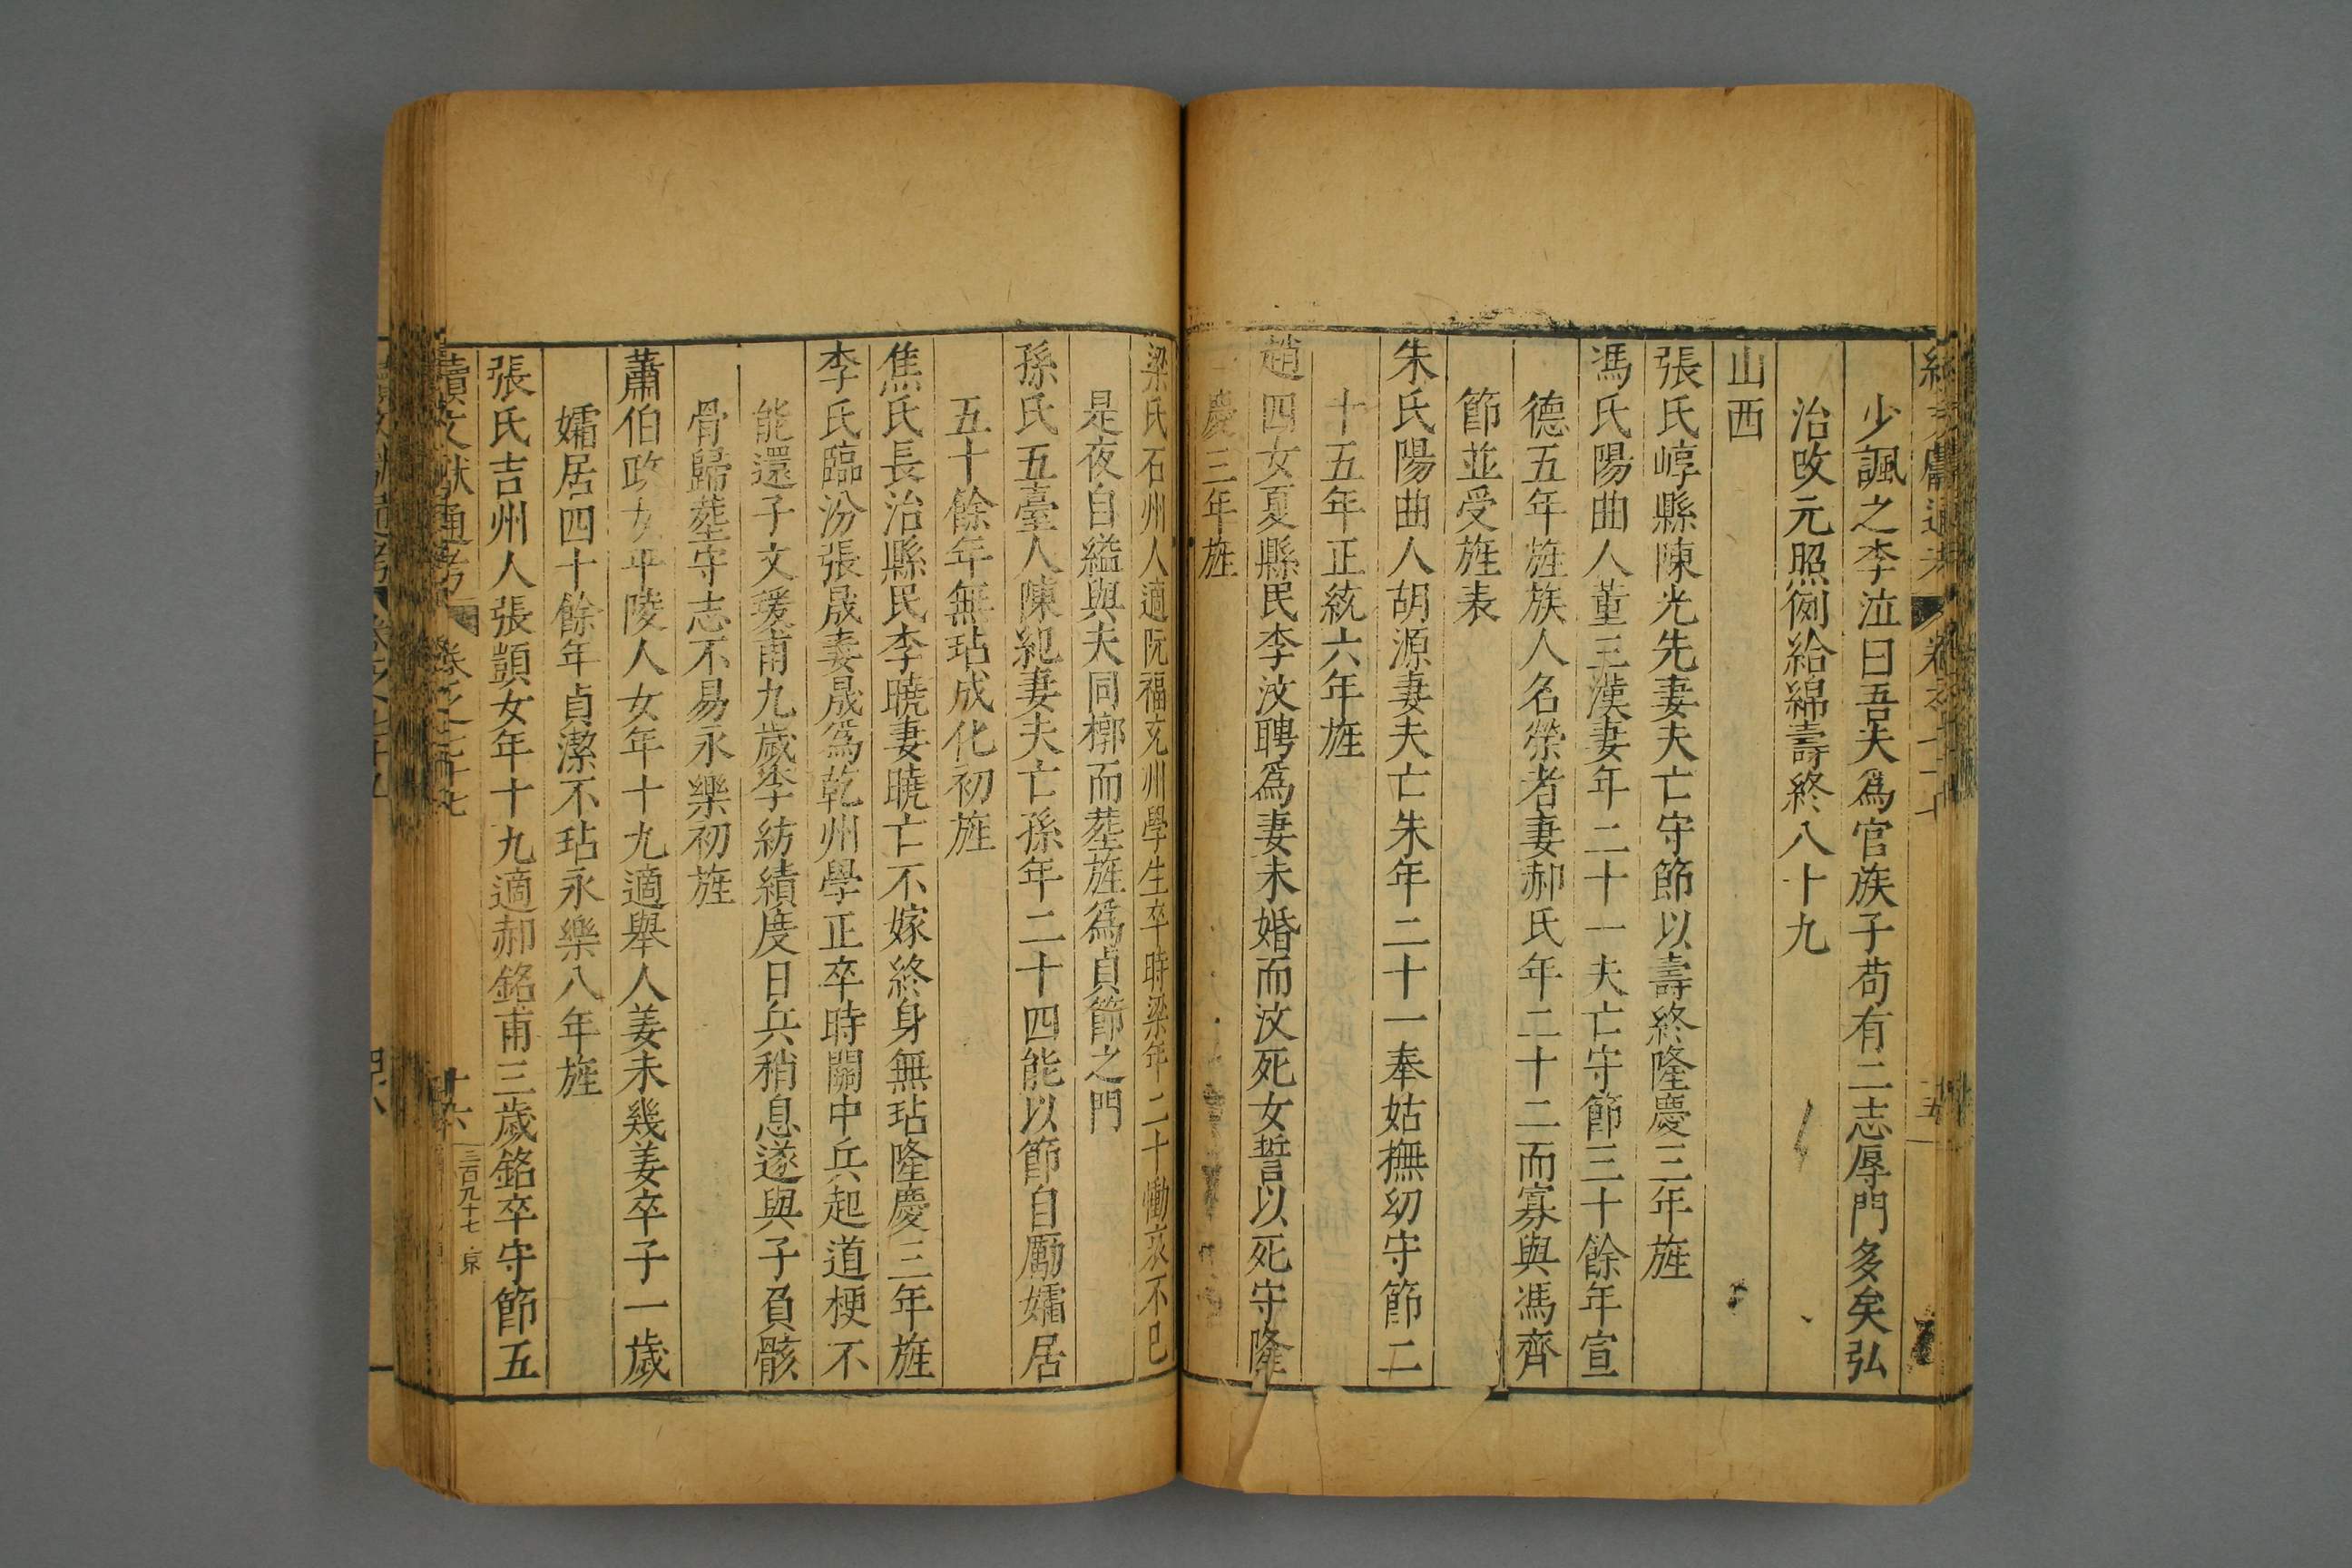 少諷之李泣曰吾夫爲官族子苟有二志辱門多矣弘
治改元照例給綿壽終八十九
山西
張氏崞縣陳光先妻夫亡守節以壽終隆慶三年旌
馮氏陽曲人董三漢妻年二十一夫亡守節三十餘年宣
德五年旌族人名榮者妻郝氏年二十二而寡與馮齊
節並受旌表
朱氏陽曲人胡源妻夫亡朱年二十一奉姑撫幼守節二
十五年正統六年旌
趙四女夏縣民李汶聘爲妻未婚而汶死女誓以死守隆
慶三年旌
梁氏石州人適阮福充州學生卒時梁年二十慟哀不已
是夜自縊與夫同槨而塟旌爲貞節之門
孫氏五臺人陳紀妻夫亡孫年二十四能以節自勵孀居
五十餘年無玷成化初旌
焦氏長治縣民李曉妻曉亡不嫁終身無玷隆慶三年旌
李氏臨汾張晟妻晟爲乾州學正卒時關中兵起道梗不
能還子文瑗甫九歲李紡績度日兵稍息遂與子負骸
骨歸塟守志不易永樂初旌
蕭伯政女平陵人女年十九適舉人姜未幾姜卒子一歲
孀居四十餘年貞潔不玷永樂八年旌
張氏吉州人張顗女年十九適郝銘甫三歲銘卒守節五
續文獻通考 卷之七十七 十六 三百九十七 京